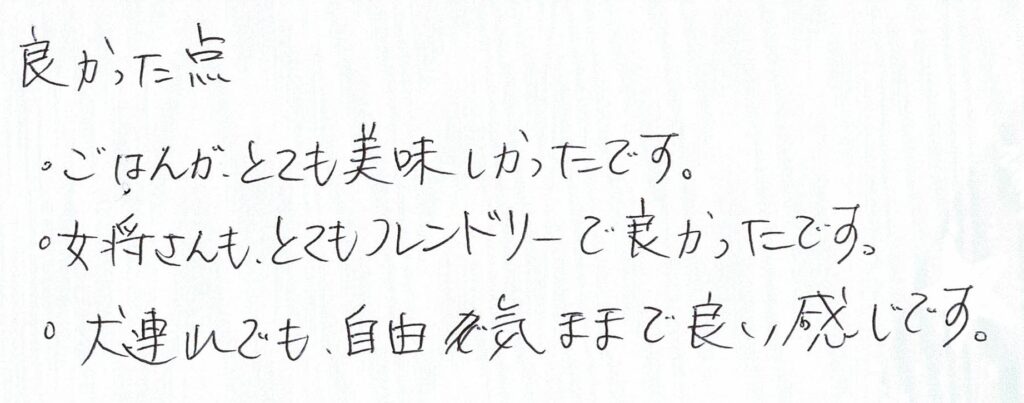 良かった点
・ごはんが、とても美味しかったです。
・女将さんも、とてもフレンドリーで良かったです。
・犬連れでも、自由で気ままで良い感じです。